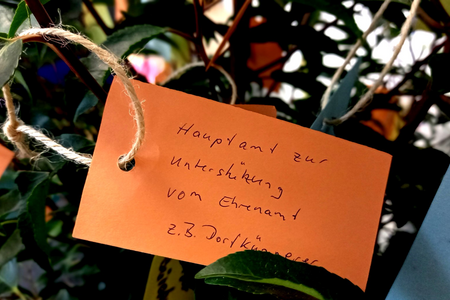 Hauptamt zur
Unterstützung
vom Ehrenamt
z.B. Dorfkümmerer